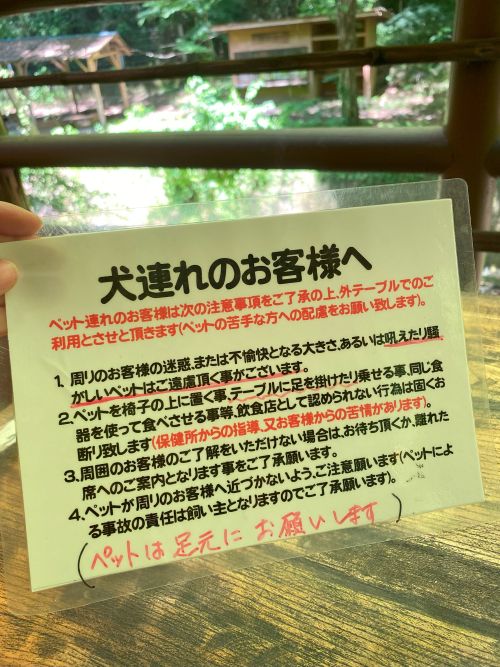 犬連れのお客様へ
ペット連れのお客様は次の注意事項をご了承の上、外テーブルでのご
利用とさせと頂きます(ペットの苦手な方への配慮をお願い致します)。
1、周りのお客様の迷惑、または不愉快となる大きさ、あるいは吼えたり騒
がしいペットはご遠慮頂く事がございます。
2、ペットを椅子の上に置く事、テーブルに足を掛けたり乗せる事、同じ食
器を使って食べさせる事等、飲食店として認められない行為は固くお
断り致します(保健所からの指導、又お客様からの苦情があります)。
3、周囲のお客様のご了解をいただけない場合は、お待ち頂くか、離れた
席へのご案内となります事をご了承願います。
4、ペットが周りのお客様へ近づかないよう、ご注意願います(ペットによ
る事故の責任は飼い主となりますのでご了承願います)。
(ペットは足元にお願いします)